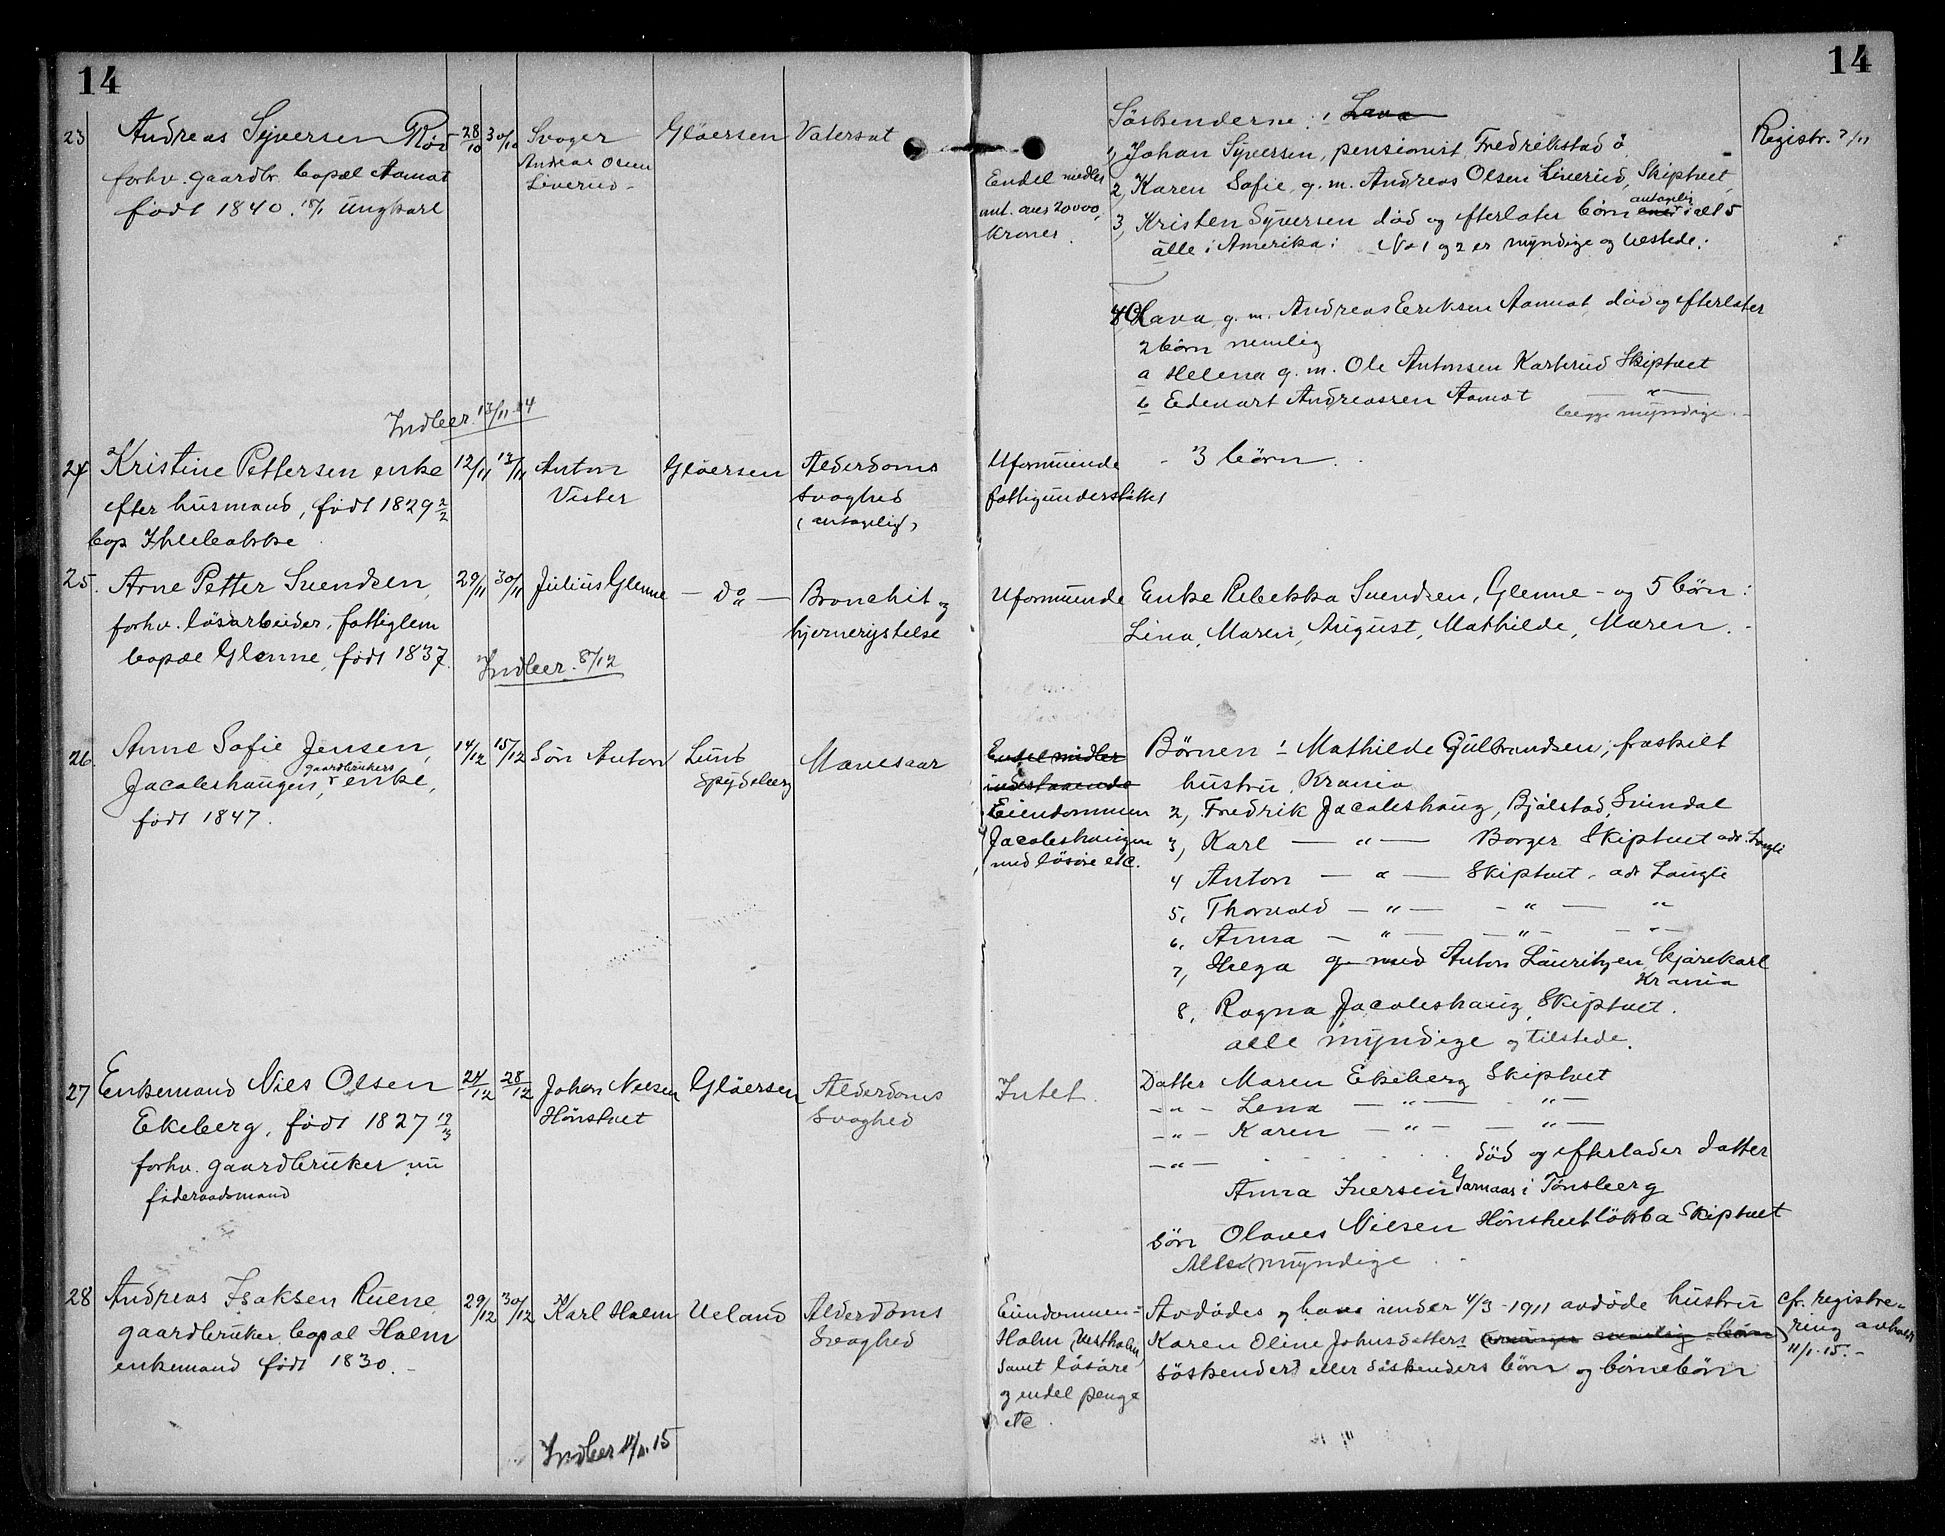 14
14
23 Andreas Syversen Röd 28/10 30/10 Svoger Gløersen Vatersot
Andreas Olsen
Liverud -
forhv. gaardbr. bopæl Aamot
født 1840. 18/1 Ungkarl
Endel midler
ant. circa 20000,
kroner.
Söskenderne: Lava
1, Johan Syversen, pensionist, Fredrikstad ö.
2, Karen Sofie, g.m. Andreas Olsen Liverud, Skiptvet,
3, Kristen Syversen död og efterlater börn antagelig ialt 5
alle i Amerika: No 1 og 2 er myndige og tilstede.
4, Olava, g. m. Andreas Eriksen Aamot, död og efterlater
2 börn nemlig
a Helena g. m. Ole Antonsen Karterud Skiptvet
b Edevart Andreassen Aamot — " —
begge myndige. -
Registr. 7/11
Indber. 13/11 14
24 Kristine Pettersen enke 12/11 13/11 Anton Gløersen Alderdoms
Vister svaghed
(antagelig)
efter husmand, født 1829 2/2
bop Ihlebakke
Uformuende
fattigunderstöttet
- 3 börn.
25. Arne Petter Svendsen, 29/11 30/11 Julius Glenne — Do — Bronchit og
hjernerystelse
forhv. lösarbeider, fattiglem
bopæl Glenne, født 1837.
Indber. 8/12
Uformuende Enke Rebekka Svendsen, Glenne - og 5 börn:
Lina, Maren, August, Mathilde, Maren. -
26. Anne Sofie Jensen, 14/12 15/12 Sön Anton Lund Mavesaar
Spydeberg
Jacobshaugen, gaardbrukers enke,
født 1847.
Endel midler
indestaaende
Eiendommen
Jacobshaugen
med lösöre etc.
Børnen: Mathilde Gulbrandsen, fraskilt
hustru, Krania
2, Fredrik Jacobshaug, Bjölstad, Svindal
3, Karl — " — Borger Skiptvet adr. Langli
4 Anton — " — Skiptvet, adr Langli
5, Thorvald — " — - " — "
6, Anna — " — — " - - " -
7, Helga g. med Anton Lauritzen kjörekarl
Krania
8, Ragna Jacobshaug, Skiptvet.
alle myndige og tilstede.
27 Enkemand Nils Olsen 24/12 28/12 Johan Nielsen Gløersen Alderdoms
Hönstvet svaghed
Ekeberg, født 1827 19/3
forhv. gaardbruker nu
föderaadsmand
Intet.
Datter Maren Ekeberg Skiptvet
— " — Lena — " — — " —
— " — Karen — " — — " —
— " — död og efterlader datter
Anna Iversen Garmaas i Tönsberg
Sön Olaves Nielsen Hönstvetlökka Skiptvet
Alle myndige
28 Andreas Isaksen Ruene, 29/12 30/12 Karl Holm Ueland Alderdoms
svaghed
gaardbruker bopæl Holm
enkemand født 1830. -
Eiendommen
Holm (Vestholm)
samt lösöre
og endel penge
etc.
Avdödes og hans under 4/3 - 1911 avdøde hustru
Karen Oline Johnsdatters
söskender eller söskenders börn og börnebörn
cfr. registre-
ring avholdt
11/1-15. -
Indber 11/1. 15